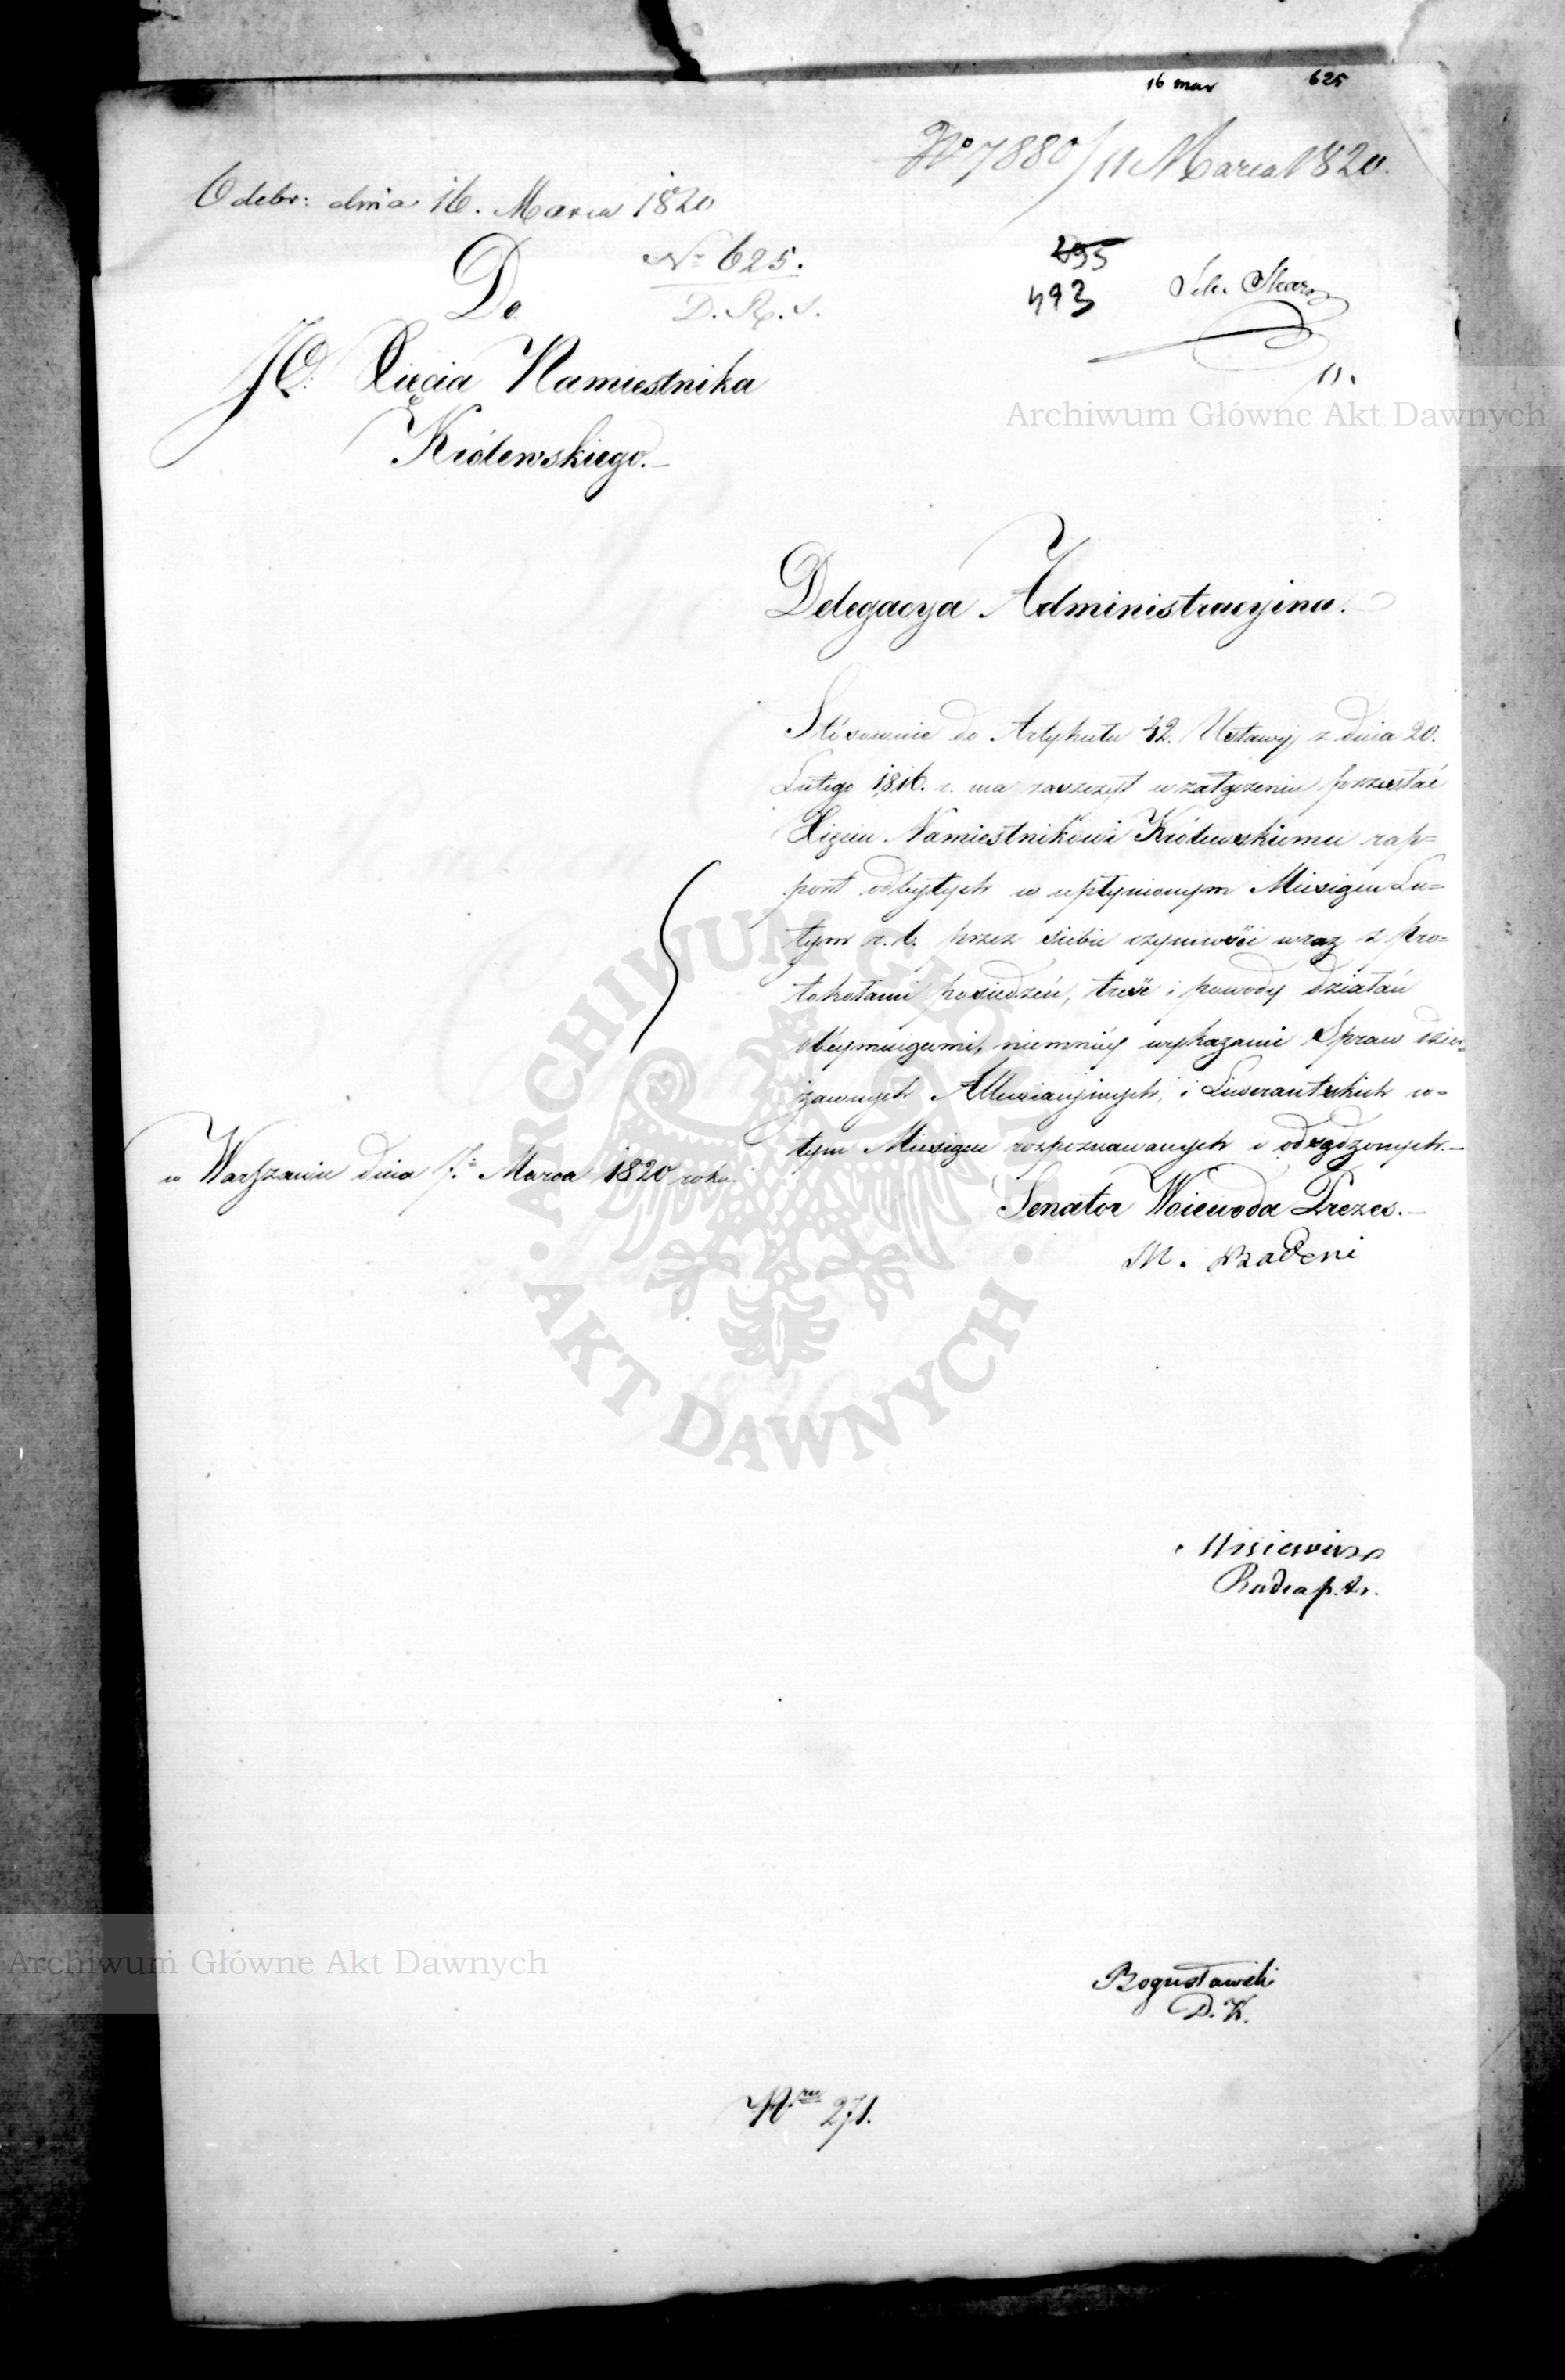 16 mar 625
No 7880/11 Marca 1820.
Odebr: dnia 16. Marca 1820
No 625.
D. R. S.
295
493
Sek. Skar
11.
Do
JO. Xięcia Namiestnika
Królewskiego.
Archiwum Główne Akt Dawnych
Delegacya Administracyina.
Stósownie do Artykułu 42. Ustawy z dnia 20.
Lutego 1816. r. ma zaszczyt w załączeniu przesłać
Xięciu Namiestnikowi Królewskiemu rap=
port odbytych w upłynionym Miesiącu Lu=
tym r. b. przez siebie czynności wraz z pro=
tokołami posiedzeń, treść i powody działań
obeymuiącemi, niemniéy wykazanie Spraw dzier=
żawnych Allewiacyinych, i Liwerantskich w=
tym Miesiącu rozpoznawanych i odsądzonych.
w Warszawie dnia 7. Marca 1820 roku.
Senator Woiewoda Prezes.
M. Badeni
ARCHIWUM GŁÓWNE
AKT DAWNYCH
Misiewicz
Radca p. t.
Archiwum Główne Akt Dawnych
Bogusławski
D. K.
Nru 271.